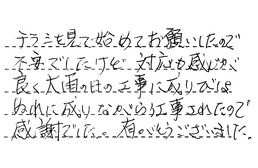 チラシを見て始めてお願いしたので
不安でしたけど対応も感じが
良く大雨の日の工事に成りびしょ
ぬれに成りながら工事されたので
感謝でした。有がとうございました。